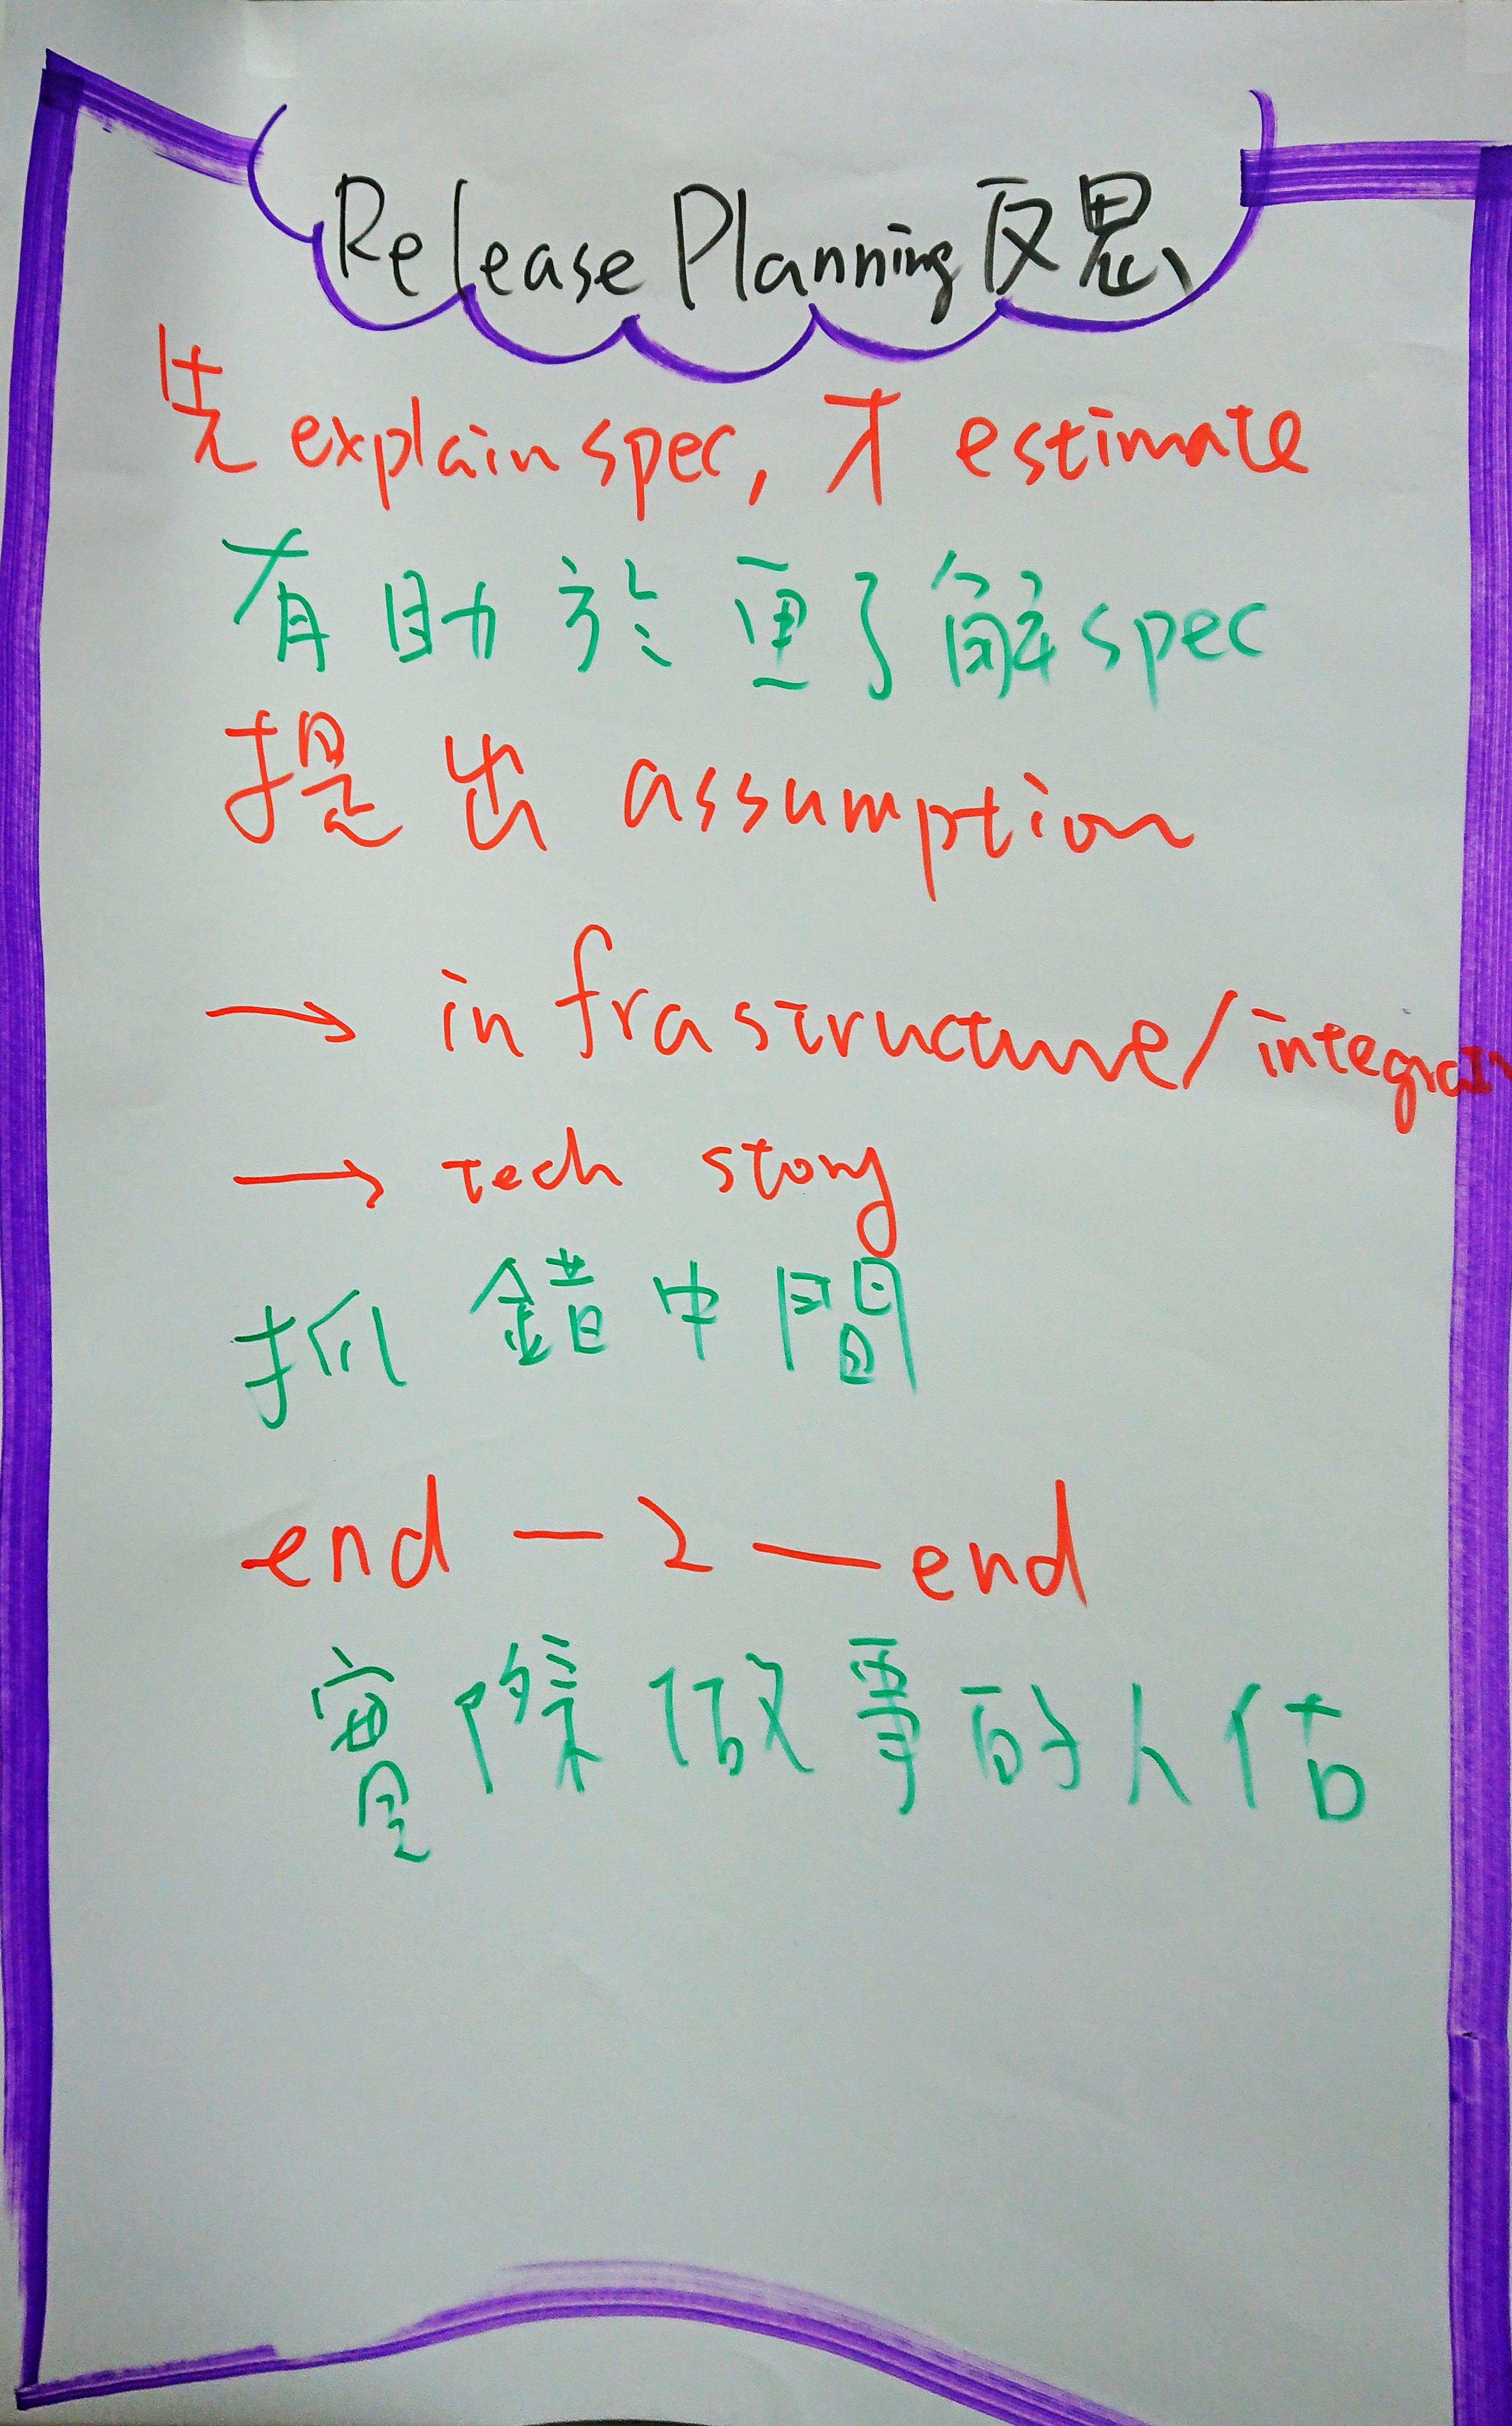 Release Planning 反思
先 explain spec, 才 estimate
有助於更了解 spec
提出 assumption
→ infrastructure/integrat
→ tech story
抓錯中間
end - 2 - end
實際做事的人估